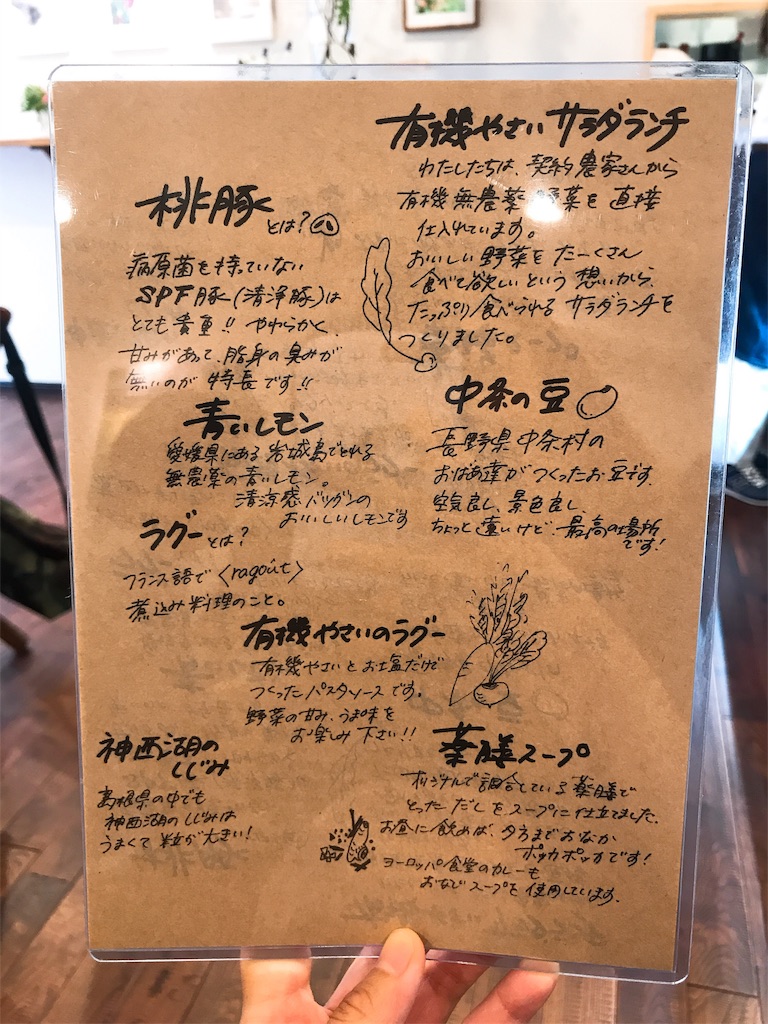 有機やさいサラダランチ
わたしたちは、契約農家さんから
有機無農薬野菜を直接
仕入れています。
おいしい野菜をたーくさん
食べて欲しいという想いから、
たっぷり食べられるサラダランチを
つくりました。
桃豚
とは?
病原菌を持っていない
SPF豚(清浄豚)は
とても貴重!! やわらかく、
甘みがあって、脂身の臭みが
無いのが特長です!!
中条の豆
長野県中条村の
おばあ達がつくったお豆です。
空気良し、景色良し、
ちょっと遠いけど、最高の場所
です!
青いレモン
愛媛県にある岩城島でとれる
無農薬の青いレモン。
清涼感バツグンの
おいしいレモンです
ラグーとは?
フランス語で〈ragoût〉
煮込み料理のこと。
有機やさいのラグー
有機やさいとお塩だけで
つくったパスタソースです。
野菜の甘み、うま味を
お楽しみ下さい!!
神西湖の
しじみ
島根県の中でも
神西湖のしじみは
うまくて粒が大きい!
薬膳スープ
オリジナルで調合している薬膳で
とっただしをスープに仕立てました。
お昼に飲めば、夕方までおなか
ポッカポッカです!
ヨーロッパ食堂のカレーも
おなじスープを使用しています。